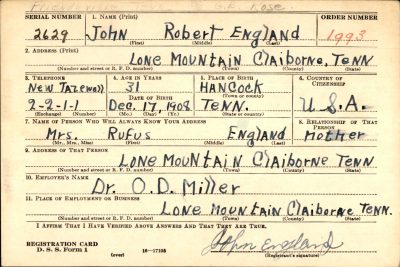 SERIAL NUMBER 1. NAME (Print) ORDER NUMBER
2629 John Robert England 1993
(First) (Middle) (Last)
2. ADDRESS (Print)
Lone Mountain Claiborne, Tenn
(Number and street or R. F. D. number) (Town) (County) (State)
3. TELEPHONE 4. AGE IN YEARS 5. PLACE OF BIRTH 6. COUNTRY OF CITIZENSHIP
New Tazewell 31 Hancock
DATE OF BIRTH (Town or county)
2-2-1-1 Dec. 17, 1908 Tenn. U.S.A.
(Exchange) (Number) (Mo.) (Day) (Yr.) (State or country)
7. NAME OF PERSON WHO WILL ALWAYS KNOW YOUR ADDRESS 8. RELATIONSHIP OF THAT PERSON
Mrs. Rufus England Mother
(Mr., Mrs., Miss) (First) (Middle) (Last)
9. ADDRESS OF THAT PERSON
Lone Mountain Claiborne Tenn
(Number and street or R. F. D. number) (Town) (County) (State)
10. EMPLOYER'S NAME
Dr. O.D. Miller
11. PLACE OF EMPLOYMENT OR BUSINESS
Lone Mountain Claiborne Tenn.
(Number and street or R. F. D. number) (Town) (County) (State)
I AFFIRM THAT I HAVE VERIFIED ABOVE ANSWERS AND THAT THEY ARE TRUE.
REGISTRATION CARD
D. S. S. Form 1 (over) 16-17105 John England
(Registrant's signature)